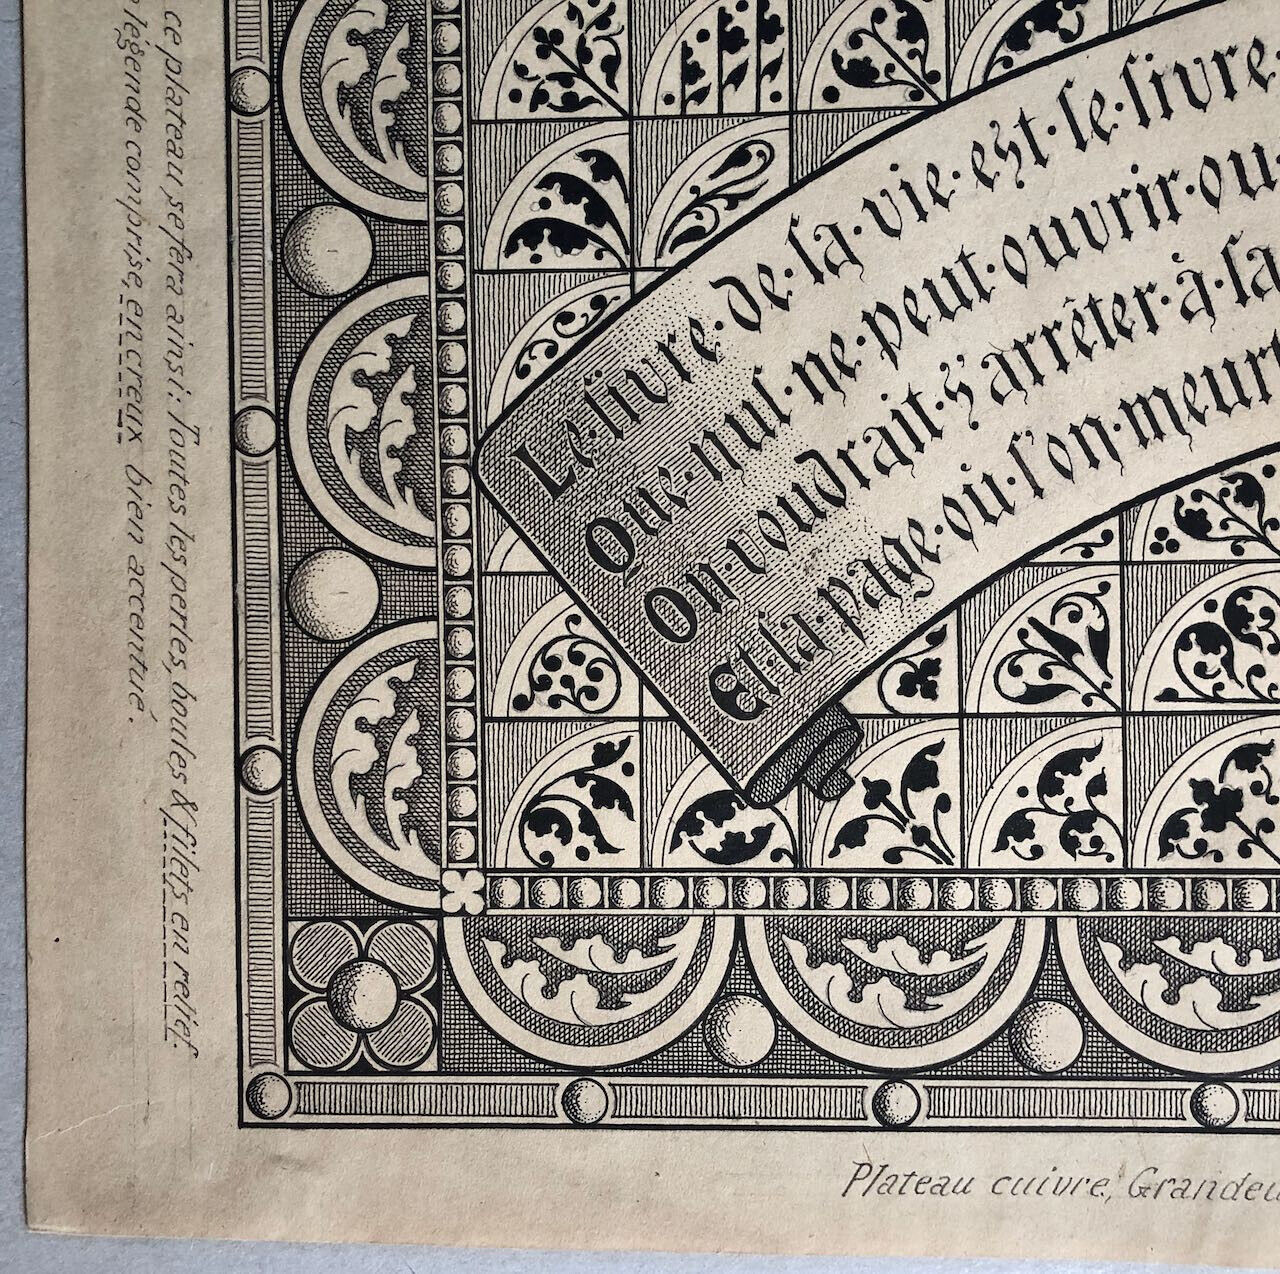 Le·livre·de·la·vie·est·le·livre
Que·nul·ne·peut·ouvrir·ou
On·voudrait·s'arrêter·à·la
Et·la·page·où·l'on·meurt
ce plateau se fera ainsi: Toutes les perles, boules & filets en relief.
légende comprise, en creux bien accentué.
Plateau cuivre, Grandeu